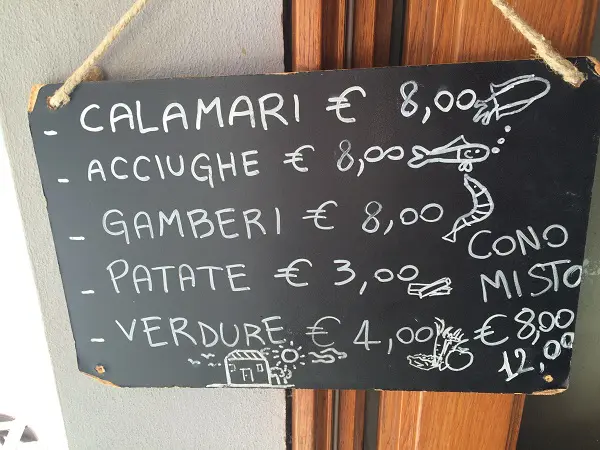 - CALAMARI € 8,00
- ACCIUGHE € 8,00
- GAMBERI € 8,00
- PATATE € 3,00
- VERDURE € 4,00
CONO
MISTO
€ 8,00
12,00